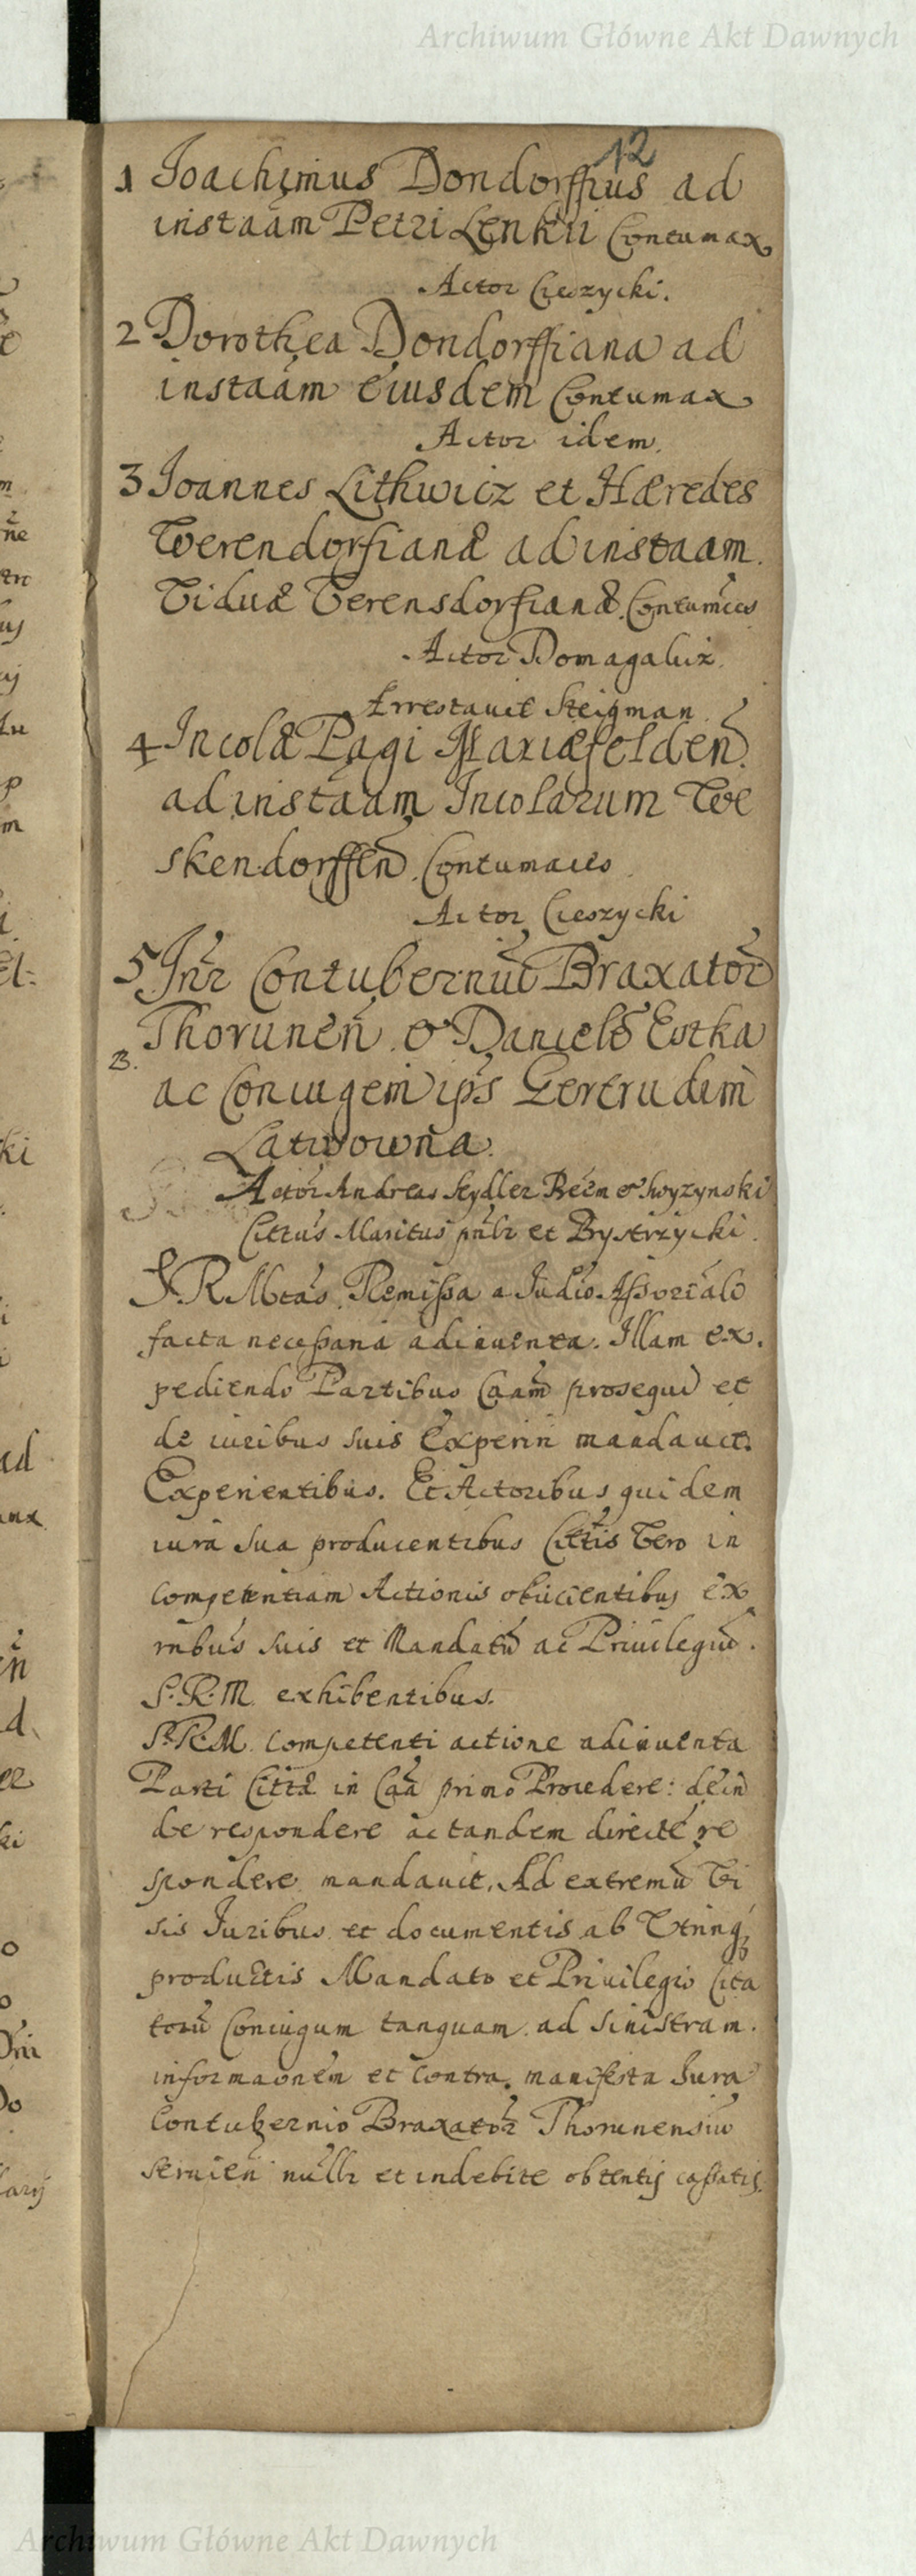 Archiwum Główne Akt Dawnych
12
1 Joachimus Dondorffius ad
instaãm Petri Lenkii Contumax
Actor Cieszycki.
2 Dorothea Dondorffiana ad
instaãm eiusdem Contumax
Actor idem.
3 Joannes Lithwicz et Hæredes
Werendorfianæ ad instaam
Viduæ Verensdorfianæ Contumẽces
Actor Domagalicz.
Arrestavit Steigman
4 Incolæ Pagi Mariæfelden.
ad instaãm Incolarum We
skendorffen. Contumaces
Actor Cieszycki
5 Inr Contuberniũ Braxator
Thorunen̄ & Danielē Estka
B.
ac Coniugem ips Gertrudim
Latwowna.
Actor Andreas Seydler Recm & Swyzynski
Cittus Maritus pnlr et Bystrzycki.
S. R Mtas Remissa a Judio Assoriali
facta necessaria adinventa. Illam ex.
pediendo Partibus Caam prosequi et
de iuribus suis Experiri mandavit.
Experientibus. Et Actoribus quidem
iura sua producentibus Cittis Vero in
competentiam Actionis obiicientibus ex
iuribus suis et Mandatũ ac Privilegiũ.
S. R. M. exhibentibus.
S. R. M. competenti actione adinventa
Parti Cittæ in Caa primo Procedere: dein
de respondere ac tandem directe re
spondere mandavit. Ad extremũ Vi
sis Juribus et documentis ab Utrinq
productis Mandato et Privilegio Cita
torũ Coniugum tanquam ad sinistram.
informaonem et contra manifesta Jura
Contubernio Braxator Thorunensiũ
servien nullr et indebite obtentis cassatis.
Archiwum Główne Akt Dawnych